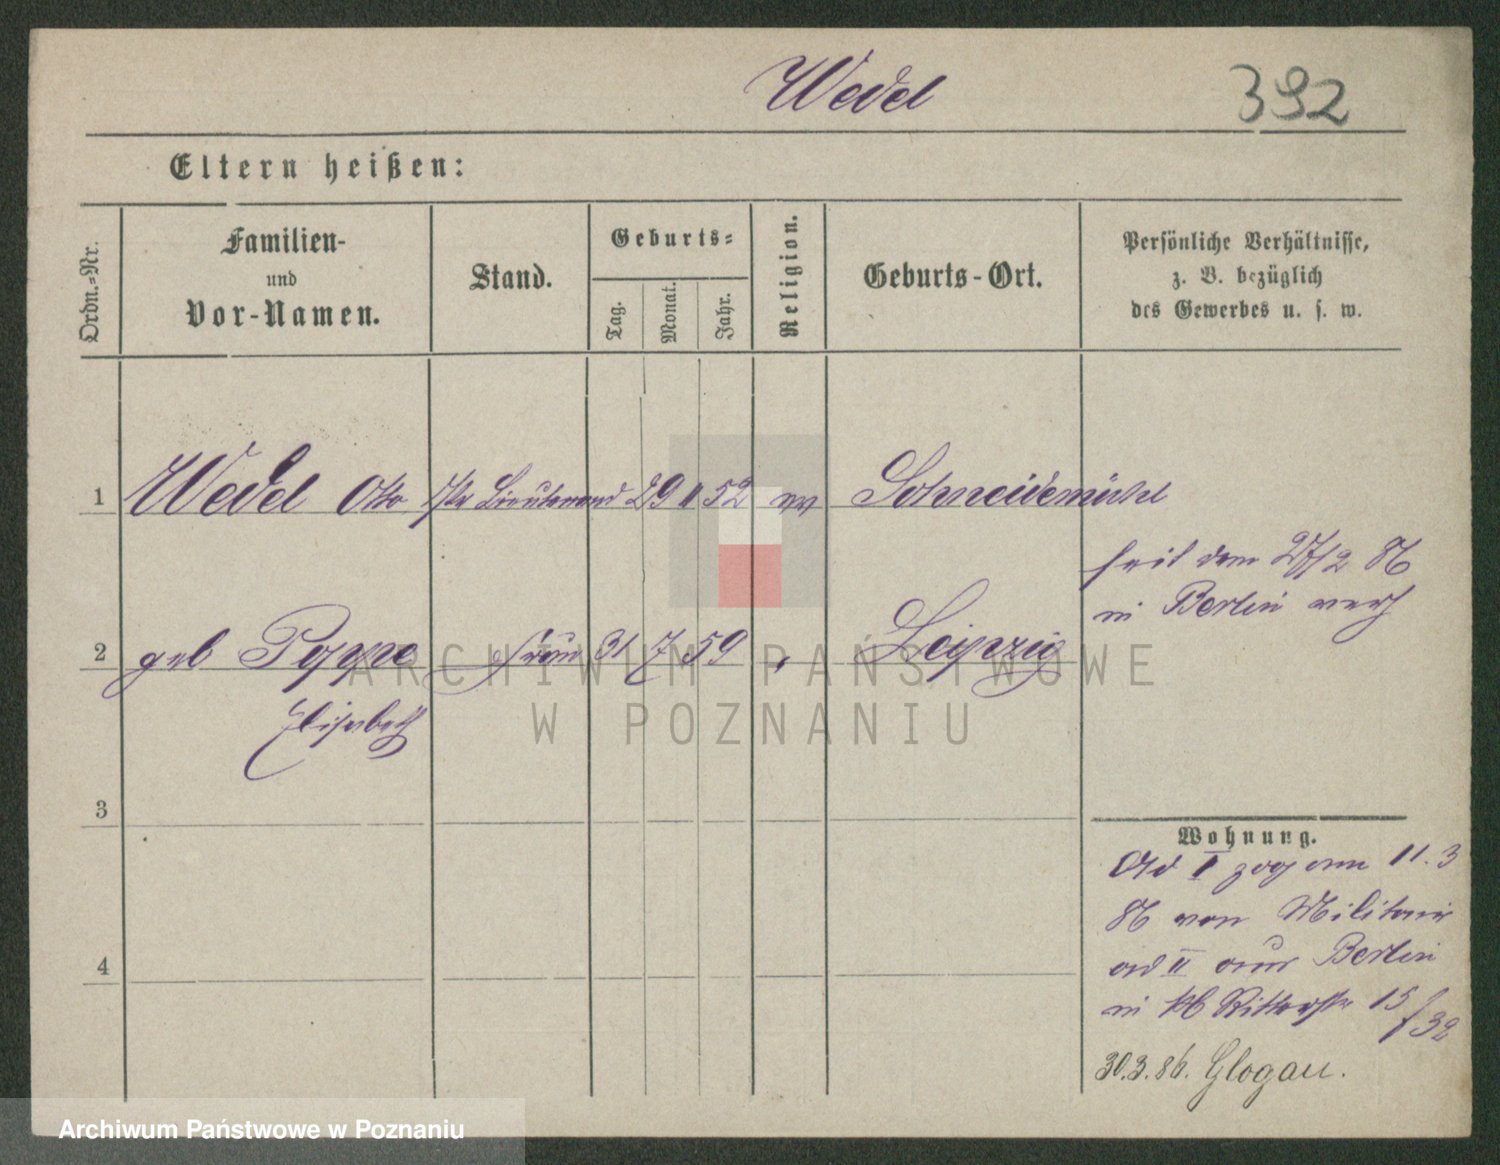 Wedel
392
Eltern heißen:
Ordn.-Nr.
Familien-
und
Vor-Namen.
Stand.
Geburts-
Tag.
Monat.
Jahr.
Religion.
Geburts-Ort.
Persönliche Verhältnisse,
z. B. bezüglich
des Gewerbes u. s. w.
1 Wedel Otto Lieutenand 29 11 52 ev Schneidemühl
seit dem 27/2 86
in Berlin verh
2 geb Poppe Frau 31 7 59 " Leipzig
Elisabeth
3
Wohnung.
Ad I zog am 11.3
86 vom Militair
4
ad II aus Berlin
in Ritterstr 15
/32
30.3.86. Glogau.
ARCHIWUM PAŃSTWOWE
W POZNANIU
Archiwum Państwowe w Poznaniu